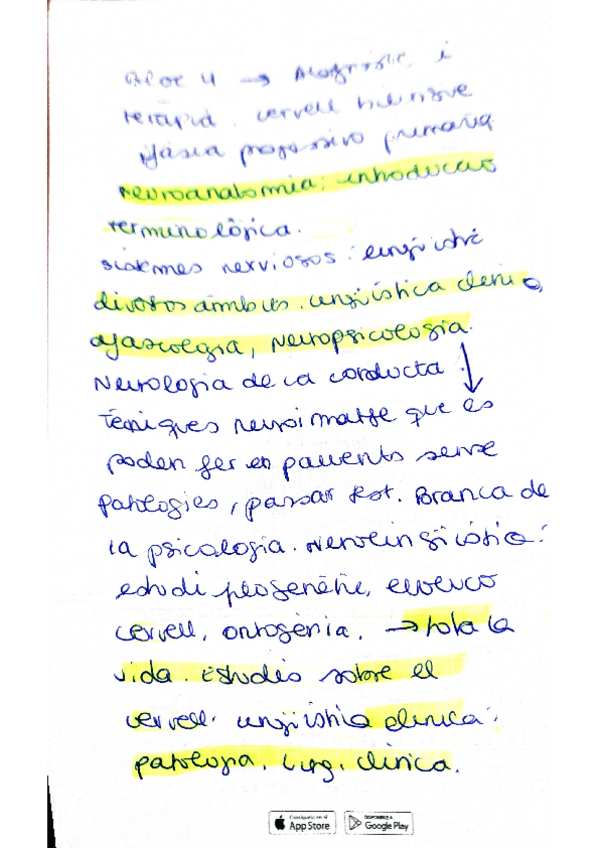 Bloc 4 → Diagnòstic i
teràpia. cervell bilingüe
afasia progressivo primaria
neuroanatomia: introducció
terminològica.
sistemes nerviosos: lingüístic
diversos àmbits. lingüística clinica,
afasologia, neuropsicologia.
Neurologia de la conducta ↓
tècniques neuroimatge que es
poden fer en pacients sense
patologies, passar test. Branca de
la psicologia. Neurolingüística:
estudi filogenètic, evolució
cervell, ontogènia. → tota la
vida. Estudis sobre el
cervell. lingüística clínica:
patologia. Ling. clínica.
Consíguelo en el App Store
DISPONIBLE EN Google Play